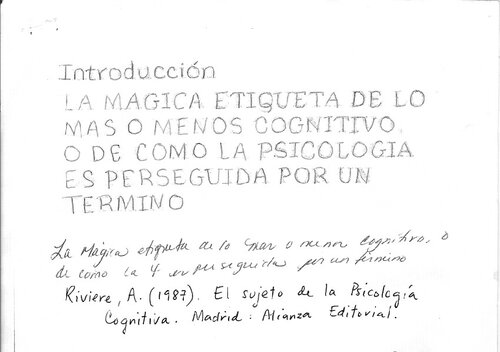 Introducción
LA MAGICA ETIQUETA DE LO
MAS O MENOS COGNITIVO,
O DE COMO LA PSICOLOGIA
ES PERSEGUIDA POR UN
TERMINO
La Mágica etiqueta de lo mas o menos cognitivo, o
de como la Ψ es perseguida por un término
Riviere, A. (1987). El sujeto de la Psicología
Cognitiva. Madrid: Alianza Editorial.